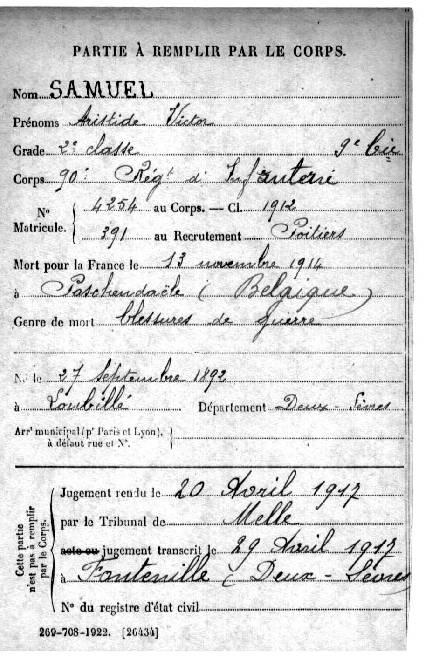 PARTIE À REMPLIR PAR LE CORPS.
Nom SAMUEL
Prénoms Aristide Victor
Grade 2e classe 9e Cie
Corps 90e Régt d'Infanterie
Nº Matricule. 4254 au Corps. — Cl. 1912
391 au Recrutement Poitiers
Mort pour la France le 13 novembre 1914
à Paschendaële (Belgique)
Genre de mort blessures de guerre
Né le 27 Septembre 1892
à Loubillé Département Deux-Sèvres
Arrt municipal (pr Paris et Lyon),
à défaut rue et Nº.
Cette partie n'est pas à remplir par le Corps.
Jugement rendu le 20 Avril 1917
par le Tribunal de Melle
acte ou jugement transcrit le 29 Avril 1917
à Fontenille (Deux-Sèvres)
Nº du registre d'état civil
269-708-1922. [26434]